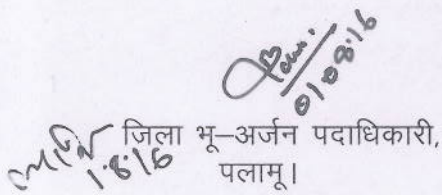 01/08/16
1.8.16
जिला भू–अर्जन पदाधिकारी,
पलामू।